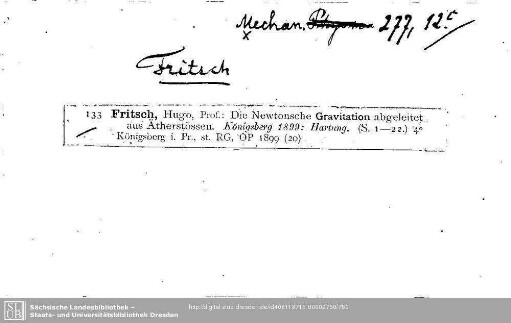 Mechan. 277, 12c
x
Fritsch
133 Fritsch, Hugo, Prof.: Die Newtonsche Gravitation abgeleitet
aus Ätherstössen. Königsberg 1899: Hartung. (S. 1—22.) 4°
Königsberg i. Pr., st. RG, OP 1899 (20)
Sächsische Landesbibliothek –
Staats- und Universitätsbibliothek Dresden